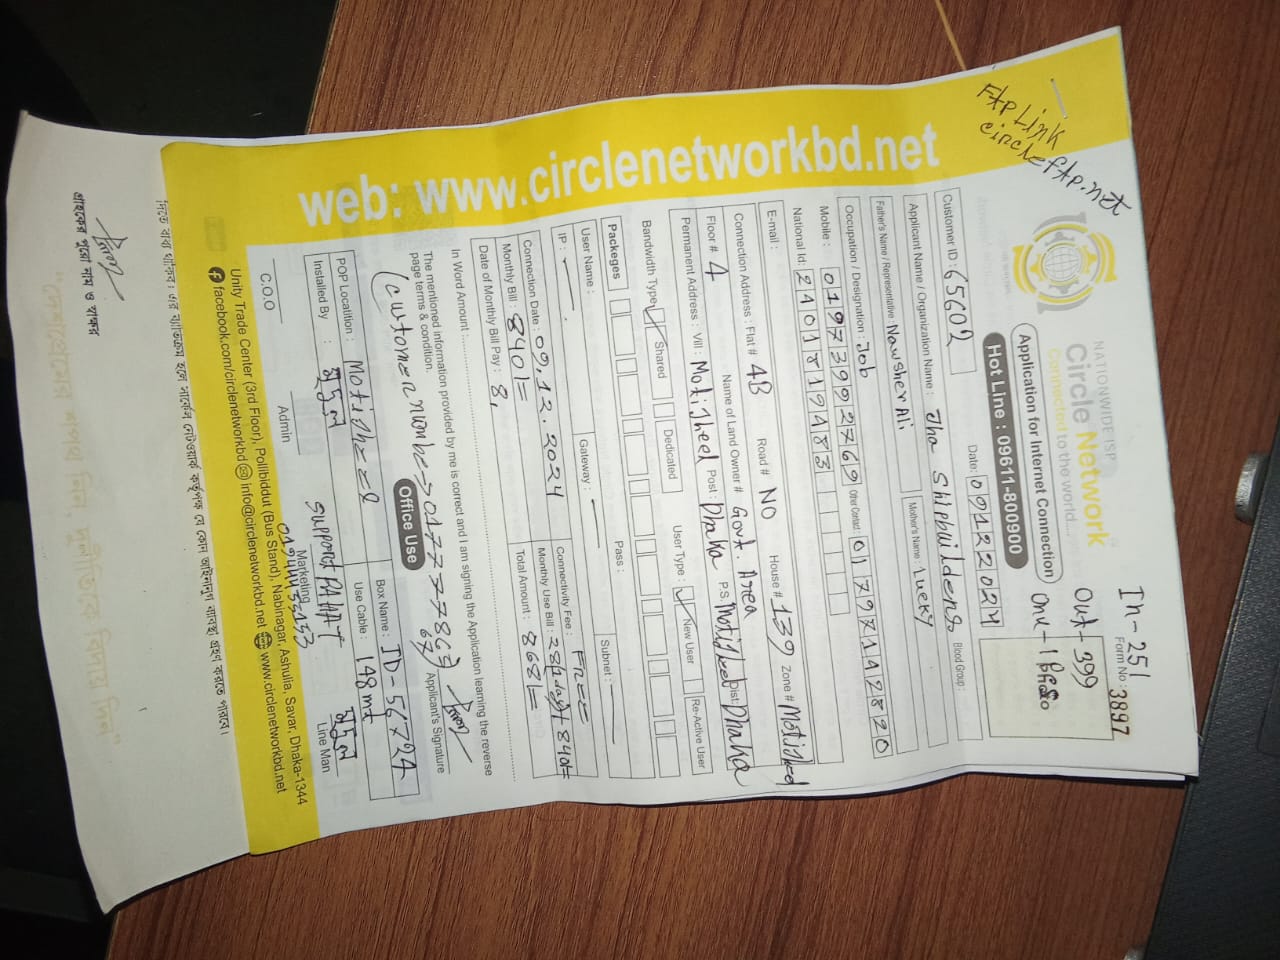 FtP Link
circleftp.net
In-251
Out-399
Onu-1 Pes
NATIONWIDE ISP
Circle Network
Connected to the world....
Form No: 3897
Application for Internet Connection
Hot Line : 09611-800900
Customer ID : 65602
Date: 09122024
Applicant Name / Organization Name : Jha Shipbuilders
Blood Group :
Father's Name / Representative : Nawsher Ali
Mother's Name : Lucky
Occupation / Designation : Job
Mobile : 01973992769
Other Contact : 01797142820
National Id: 2401819483
E-mail :
Connection Address : Flat # 4B Road # NO House # 139 Zone # Motijheel
Floor # 4 Name of Land Owner # Govt. Area
Permanent Address : Vill : Motijheel Post : Dhaka P.S. Motijheel Dist: Dhaka
Bandwidth Type : Shared Dedicated User Type : New User Re-Active User
Packeges
User Name : Pass :
IP : Gateway : Subnet :
Connection Date : 09.12.2024 Connectivity Fee : Free
Monthly Bill : 840/= Monthly Use Bill : 840/=
Date of Monthly Bill Pay : 8, Total Amount : 868/=
In Word Amount :
The mentioned information provided by me is correct and I am signing the Application learning the reverse
page terms & condition.
Applicant's Signature
Office Use
POP Locatition : Motidheel Box Name : JD-56724
Installed By : মৃদুল Use Cable : 148 mt
Support RAHAT
01944433153 মৃদুল
C.O.O Admin Marketing Line Man
Unity Trade Center (3rd Floor), Pollibiddut (Bus Stand), Nabinagar, Ashulia, Savar, Dhaka-1344
facebook.com/circlenetworkbd info@circlenetworkbd.net www.circlenetworkbd.net
web: www.circlenetworkbd.net
গ্রাহকের পুরো নাম ও স্বাক্ষর